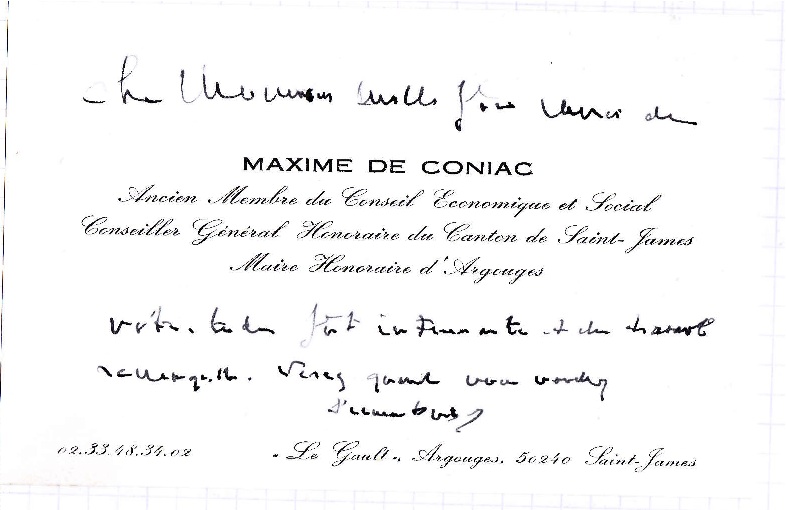 Cher Monsieur mille fois merci de
MAXIME DE CONIAC
Ancien Membre du Conseil Economique et Social
Conseiller Général Honoraire du Canton de Saint-James
Maire Honoraire d'Argouges
votre fort intéressante et du travail
remarquable. Venez quand vous voudrez
02.33.48.34.02
« Le Gault », Argouges. 50240 Saint-James